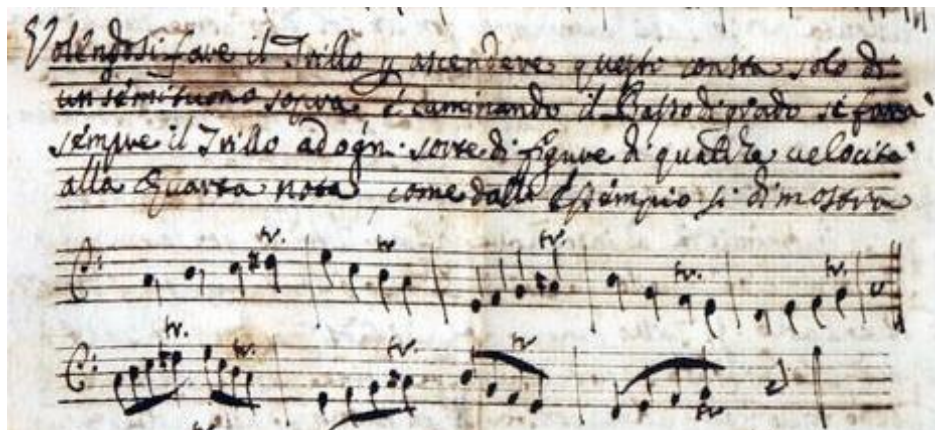 Volendosi fare il Trillo p ascendere questo consta solo di
un semituono sopra e caminando il Basso di grado si fara
sempre il Trillo ad ogni sorte di figure di qualsisia velocità
alla quarta nota, come dall Essempio si dimostra
tr. tr tr. tr. tr.
tr. tr. tr. tr tr